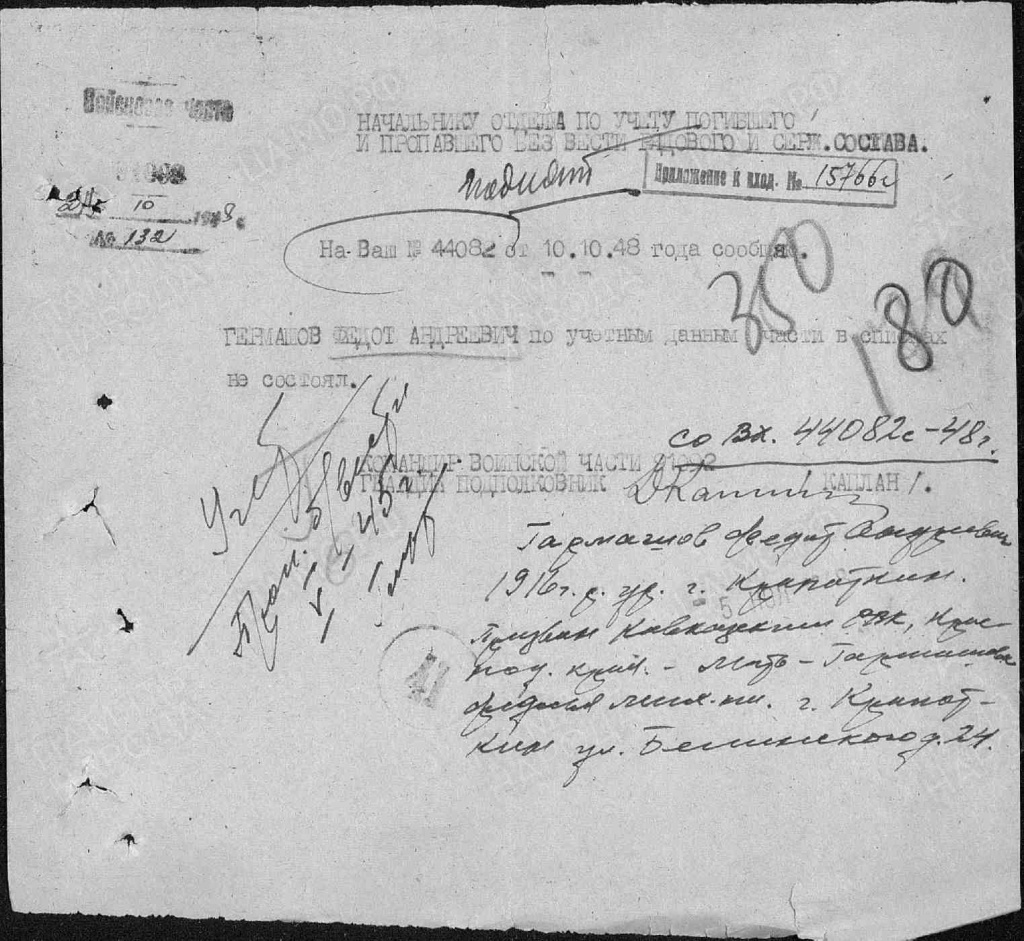 Войсковая часть
НАЧАЛЬНИКУ ОТДЕЛА ПО УЧЕТУ ПОГИБШЕГО
И ПРОПАВШЕГО БЕЗ ВЕСТИ РЯДОВОГО И СЕРЖ.СОСТАВА.
Приложение к вход. № 15766с
24 10 1948 г.
№ 132
На Ваш № 44082 от 10.10.48 года сообщаю.
350
180
ГЕРМАШОВ ФЕДОТ АНДРЕЕВИЧ по учетным данным части в списках
не состоял.
со вх. 44082с-48г.
КОМАНДИР ВОИНСКОЙ ЧАСТИ
ГВАРДИИ ПОДПОЛКОВНИК КАПЛАН/.
Гармашов Федот Андреевич
1916 г.р. ур. г. Кропоткин.
Призван Кавказским РВК, Крас-
нод. край. - Мать - Гармашова
г. Кропот-
кин ул. Белинского д. 24.